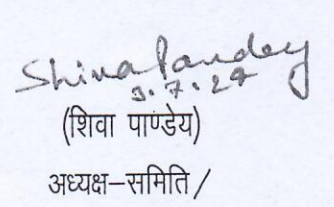 Shiva Pandey
3.7.27
(शिवा पाण्डेय)
अध्यक्ष–समिति /